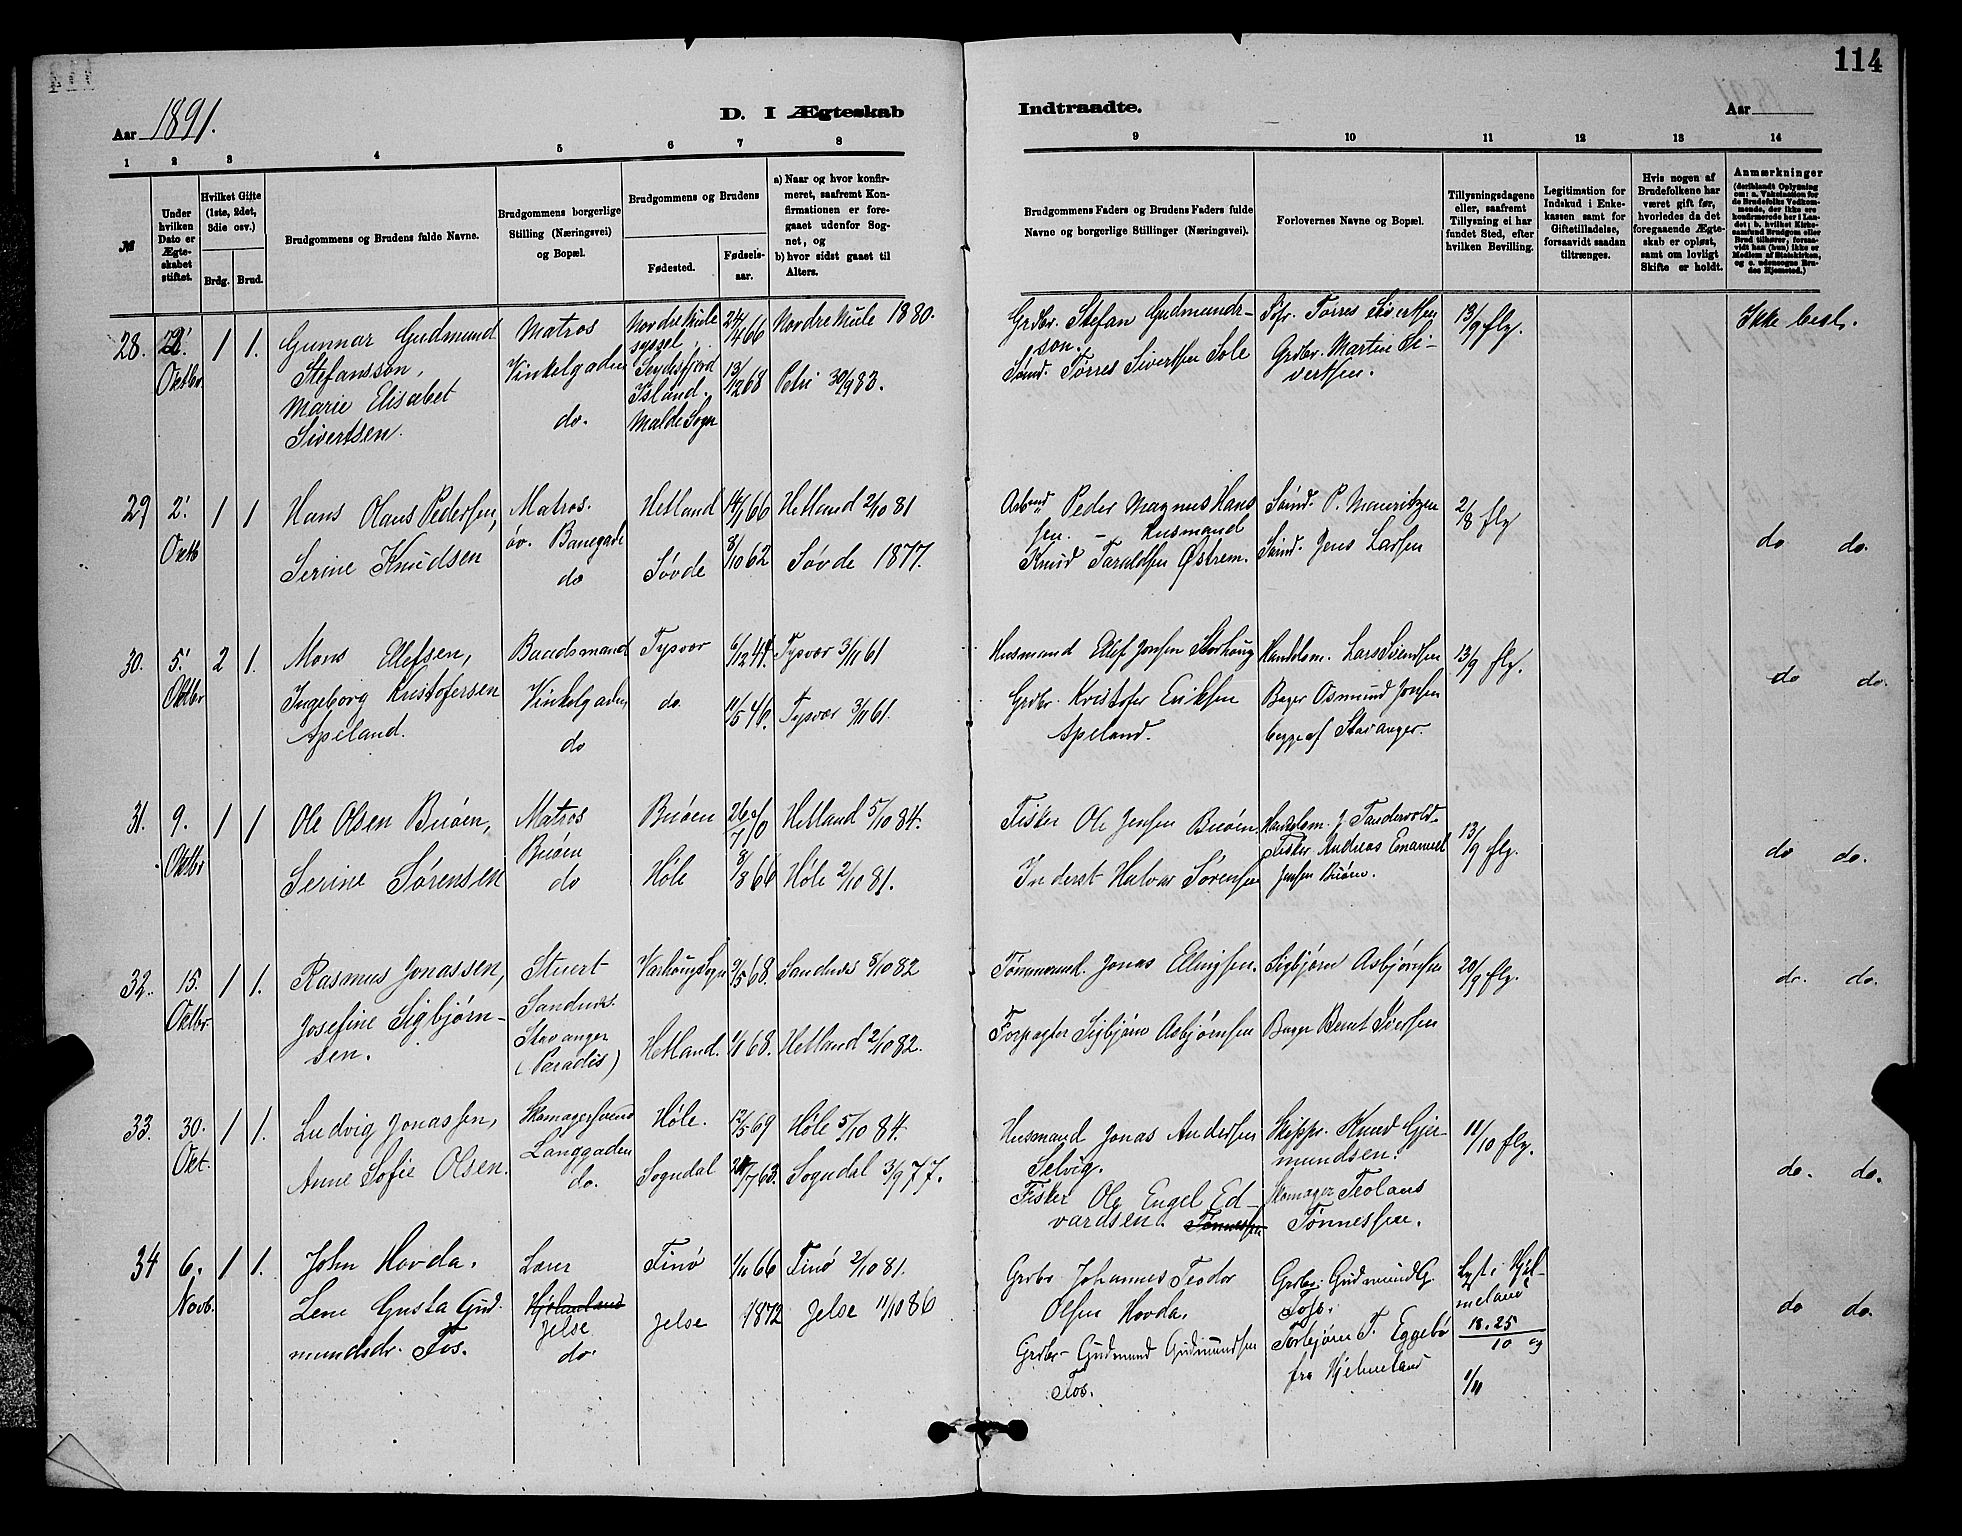 114
Aar 1891.
D. I Ægteskab
Indtraadte.
Aar
1 2 3 4 5 6 7 8 9 10 11 12 13 14
№
Under hvilken Dato er Ægteskabet stiftet.
Hvilket Gifte (1ste, 2det, 3die osv.)
Brdg. Brud.
Brudgommens og Brudens fulde Navne.
Brudgommens borgerlige Stilling (Næringsvei) og Bopæl.
Brudgommens og Brudens
Fødested.
Fødselsaar.
a) Naar og hvor konfirmeret, saafremt Konfirmationen er foregaaet udenfor Sognet, og
b) hvor sidst gaaet til Alters.
Brudgommens Faders og Brudens Faders fulde Navne og borgerlige Stillinger (Næringsvei).
Forlovernes Navne og Bopæl.
Tillysningsdagene eller, saafremt Tillysning ei har fundet Sted, efter hvilken Bevilling.
Legitimation for Indskud i Enkekassen samt for Giftetilladelse, forsaavidt saadan tiltrænges.
Hvis nogen af Brudefolkene har været gift før, hvorledes da det foregaaende Ægteskab er opløst, samt om lovligt Skifte er holdt.
Anmærkninger
(deriblandt Oplysning om: a. Vaksination for de Brudefolks Vedkommende, der ikke ere konfirmerede her i Landet; b. hvilket Kirkesamfund Brudgom eller Brud tilhører, forsaavidt han (hun) ikke er Medlem af Statskirken, og c. udensogns Brudes Hjemsted.)
28. 2' Oktbr 1 1.
Gunnar Gudmund Stefansson,
Marie Elisabet Sivertsen.
Matros Vinkelgaden
do.
Nordre Mulesyssel, Seydesfjord Island.
Malde Sogn
24/4 66
13/12 68
Nordre Mule 1880.
Petri 30/9 83.
Grdbr. Stefan Gudmundsson.
Sømd. Tørres Sivertsen Sole
Sifr. Tørres Sivertsen
Grdbr. Martin Sivertsen.
13/9 flg.
Ikke besl.
29 2' Oktb 1 1
Hans Olaus Pedersen,
Serine Knudsen
Matros. øv. Banegade
do
Hetland
Søvde
14/1 66
8/10 62
Hetland 2/10 81
Søvde 1877.
Arbmd Peder Magnus Hansen. - Husmand
Knud Taraldsen Østrem.
Sømd. P. Mauritzen
Sømd. Jens Larsen
2/8 flg
do do.
30. 5' Oktbr 2 1.
Mons Olefsen,
Ingeborg Kristofersen Apeland.
Baadsmand Vinkelgaden
do
Tysvær
do.
6/12 44.
11/5 46.
Tysvær 3/11 61
Tysvær 3/11 61.
Husmand Olef Jonsen Storhoug
Grdbr. Kristofer Eriksen Apeland.
Handelsm. Lars Svendsen
Bager Osmund Jonsen
begge af Stavanger.
13/9 flg.
do do.
31. 9. Oktbr 1 1
Ole Olsen Buøen,
Serine Sørensen
Matros Buøen
do
Buøen
Høle
26/7 70
8/8 66
Hetland 5/10 84.
Høle 2/10 81.
Fisker Ole Jensen Buøen.
Inderst Halvar Sørensen
Handelsm. J Tandervold.
Fisker Andreas Emanuel Jensen Buøen.
13/9 flg.
do do.
32. 15. Oktbr. 1 1.
Rasmus Jonassen,
Josefine Sigbjørnsen.
Stuert Sandnes.
Stavanger (Paradis)
Varhoug Sogn
Hetland.
9/5 68.
1/1 68.
Sandnes 8/10 82
Hetland 2/10 82.
Tømmermd. Jonas Elingsen.
Forpagter Sigbjørn Asbjørnsen
Sigbjørn Asbjørnsen
Bager Bernt Siversen
20/9 flg.
do. do.
33. 30. Okt. 1 1.
Ludvig Jonassen,
Anne Sofie Olsen.
Skomagersvend Langgaden
do.
Høle.
Sogndal
12/5 69
24/7 63.
Høle 5/10 84.
Sogndal 3/9 77.
Husmand Jonas Andersen Selvig.
Fisker Ole Engel Edvardsen. Tønnessen
Skippr. Knud Gjermundsen.
Skomager Teolaus Tønnessen.
11/10 flg.
do. do.
34 6. Novb. 1 1.
John Hovda.
Lene Gusta Gudmundsdr. Fos.
Lærer
Hjelmeland
Jelse
do.
Finø
Jelse
1/11 66
1872
Finø 2/10 81.
Jelse 11/10 86
Grdbr Johannes Teodor Olsen Hovda.
Grdbr- Gudmund Gudmundsen Fos.
Grdbr. Gudmund G. Fos.
Torbjørn T. Eggebø
fra Hjelmeland
Lyst i Hjelmeland
18. 25/10 og
1/11
do do.